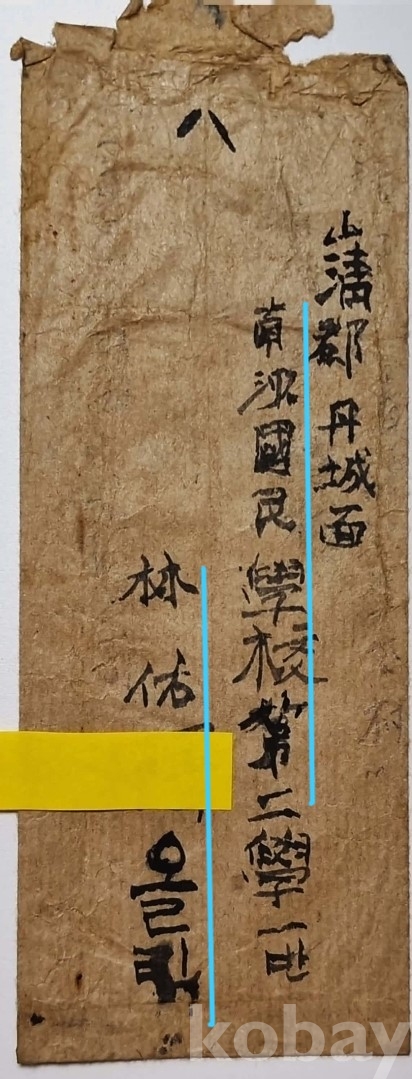 八
山淸郡 丹城面
南沙國民學校第二學
林佑 올림
kobay